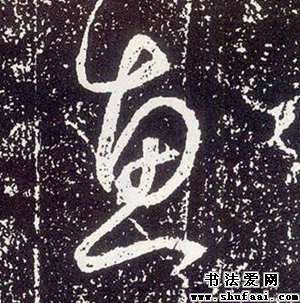 惠
书法爱网
www.shufaai.com